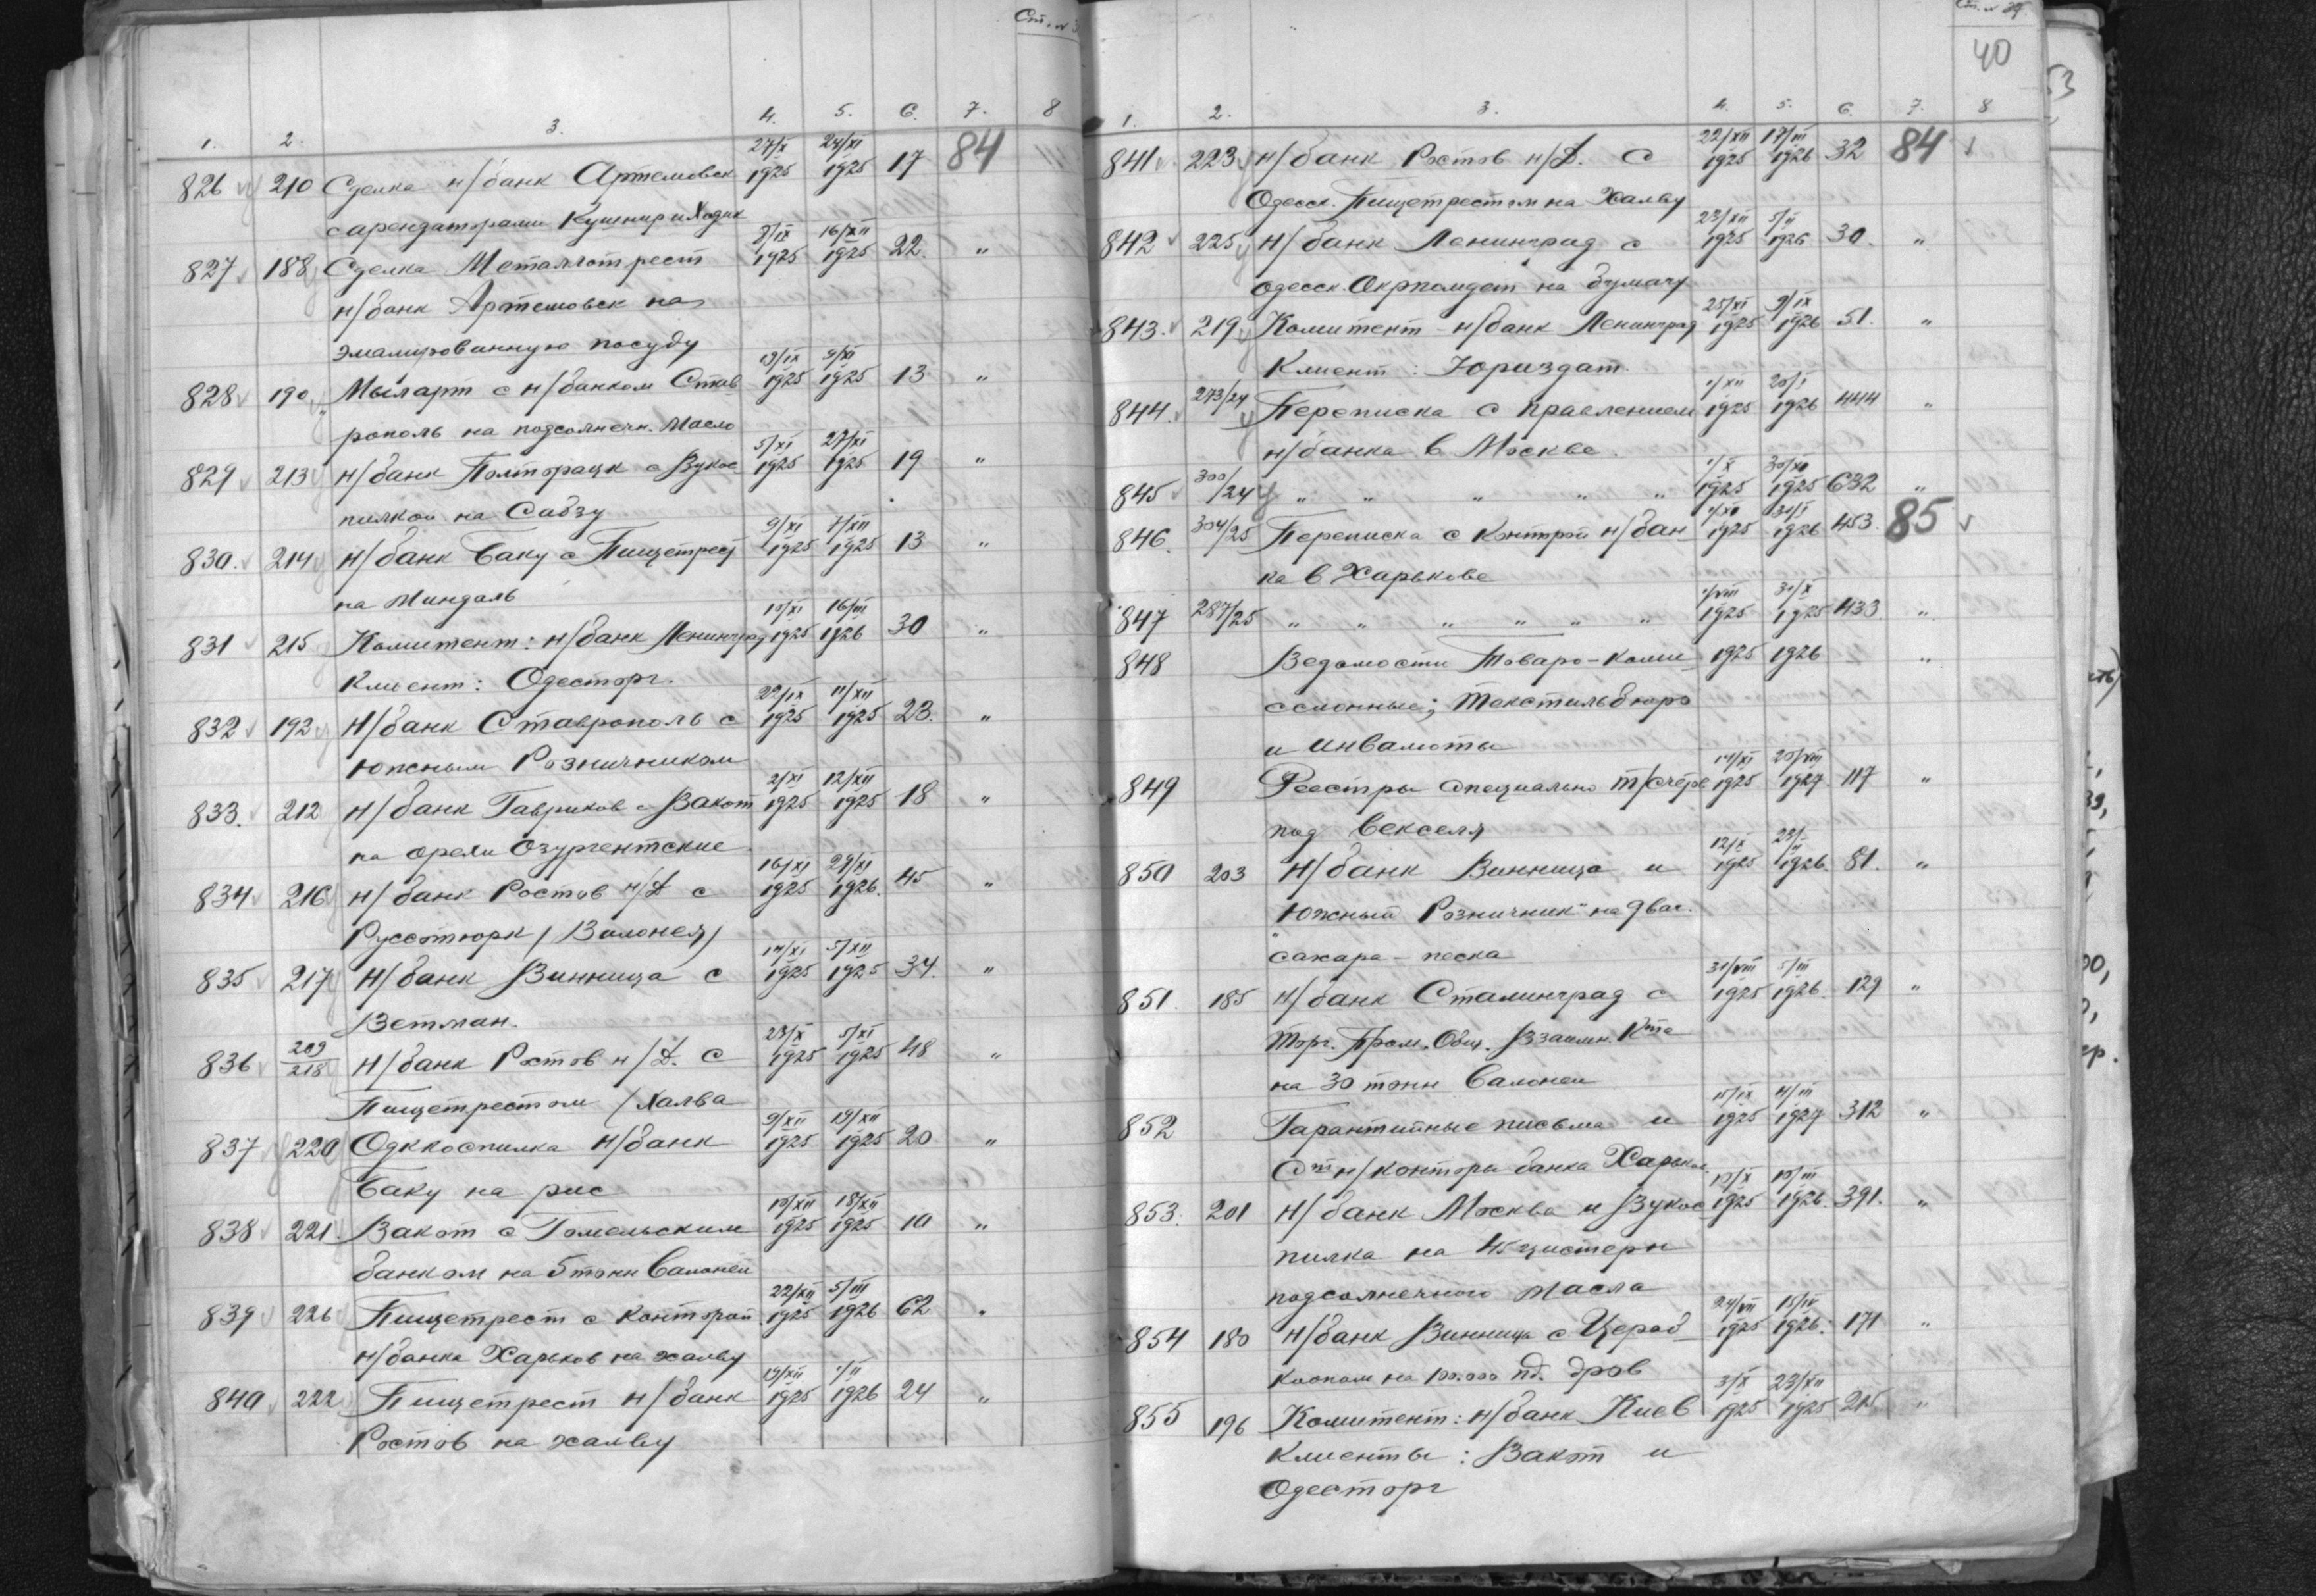 Ст. N 3
1. 2. 3. 4. 5. 6. 7. 8
826 210 Сделка н/банк Артемовск 27/X 1925 24/XI 1925 17 84
с арендаторами Кушнир и Ходик
827 188 Сделка Металлотрест 8/IX 1925 16/XII 1925 22. "
н/банк Артемовск на
эмалированную посуду
828 190 Мыларт с н/банком Став 19/IX 1925 9/XI 1925 13 "
рополь на подсолнечн. масло
829 213 н/банк Полторацк с Вукос 5/XI 1925 27/XI 1925 19 "
пилкой на Сабзу
830. 214 н/банк Баку с Пищетрест 9/XI 1925 7/XII 1925 13 "
на миндаль
831 215 Комитент: н/банк Ленинград 10/XI 1925 16/III 1926 30 "
Клиент: Одесторг.
832 192 н/банк Ставрополь с 22/IX 1925 11/XII 1925 23. "
Южным Розничником
833. 212 н/банк Гавриков с Вакот 2/XI 1925 12/XII 1925 18 "
на орехи Озургентские
834 216 н/банк Ростов н/Д с 16/XI 1925 29/XI 1926. 45 "
Руссотюрк (Валонея)
835 217 н/банк Винница с 14/XI 1925 5/XII 1925 34. "
Ветман.
836 209/218 н/банк Ростов н/Д. с 23/X 1925 5/XI 1925 48 "
Пищетрестом (Халва
837 220 Одккоспилка н/банк 9/XII 1925 19/XII 1925 20 "
Баку на рис
838 221. Вакот с Гомельским 10/XII 1925 18/XII 1925 10 "
банком на 5 тонн Валонеи
839 226 Пищетрест с конторой 22/XII 1925 5/III 1926 62 "
н/банка Харьков на халву
840 222 Пищетрест н/банк 19/XII 1925 1/II 1926 24 "
Ростов на халву
Ст. N 39.
40
1. 2. 3. 4. 5. 6. 7. 8
841 223 н/банк Ростов н/Д. с 22/XII 1925 17/III 1926 32 84
Одесск. Пищетрестом на Халву
842 225 н/банк Ленинград с 23/XII 1925 5/II 1926 30. "
одесск. Окрпомдет на бумагу
843. 219 Комитент - н/банк Ленинград 25/XI 1925 9/IX 1926 51. "
Клиент: Юриздат.
844. 273/24 Переписка с правлением 1/XII 1925 20/I 1926 444 "
н/банка в Москве.
845 300/24 " " " " " 1/X 1925 30/XII 1925 632 "
846. 304/25 Переписка с конторой н/бан 1/XII 1925 31/I 1926 453. 85
ка в Харькове
847 287/25 " " " " " " 1/VIII 1925 31/X 1925 433. "
848 Ведомости Товаро-коми 1925 1926 - "
ссионные; Текстильбюро
и Инвалюты
849 Реестры специально т/счёре 14/XI 1925 20/VIII 1927. 117 "
под векселя
850 203 н/банк Винница и 12/X 1925 23/II 1926. 81. "
"Южный Розничник" на 9 ваг.
сахара - песка
851. 185 н/банк Сталинград с 31/VIII 1925 5/III 1926. 129 "
Торг. Пром. Общ. Взаимн. Кта
на 30 тонн Валонеи
852 Гарантийные письма и 15/IX 1925 4/III 1927 312 "
От н/конторы банка Харьков.
853. 201 н/банк Москва и Вукос 10/X 1925 10/III 1926. 391. "
пилка на 45 цистерн
подсолнечного масла
854 180 н/банк Винница с Цераб 24/VII 1925 15/IV 1926. 171 "
коопом на 100.000 пд. дров
855 196 Комитент: н/банк Киев 3/X 1925 23/XII 1925 215 "
Клиенты: Вакот и
Одесторг